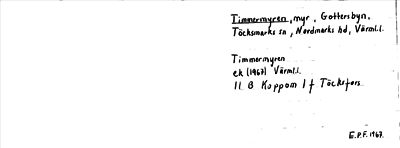 Timmermyren, myr, Gottersbyn,
Töcksmarks sn, Nordmarks hd, Värml.l.
Timmermyren
ek (1967) Värml.l.
11 B Koppom 1 f Töcksfors
E.P.F. 1967.